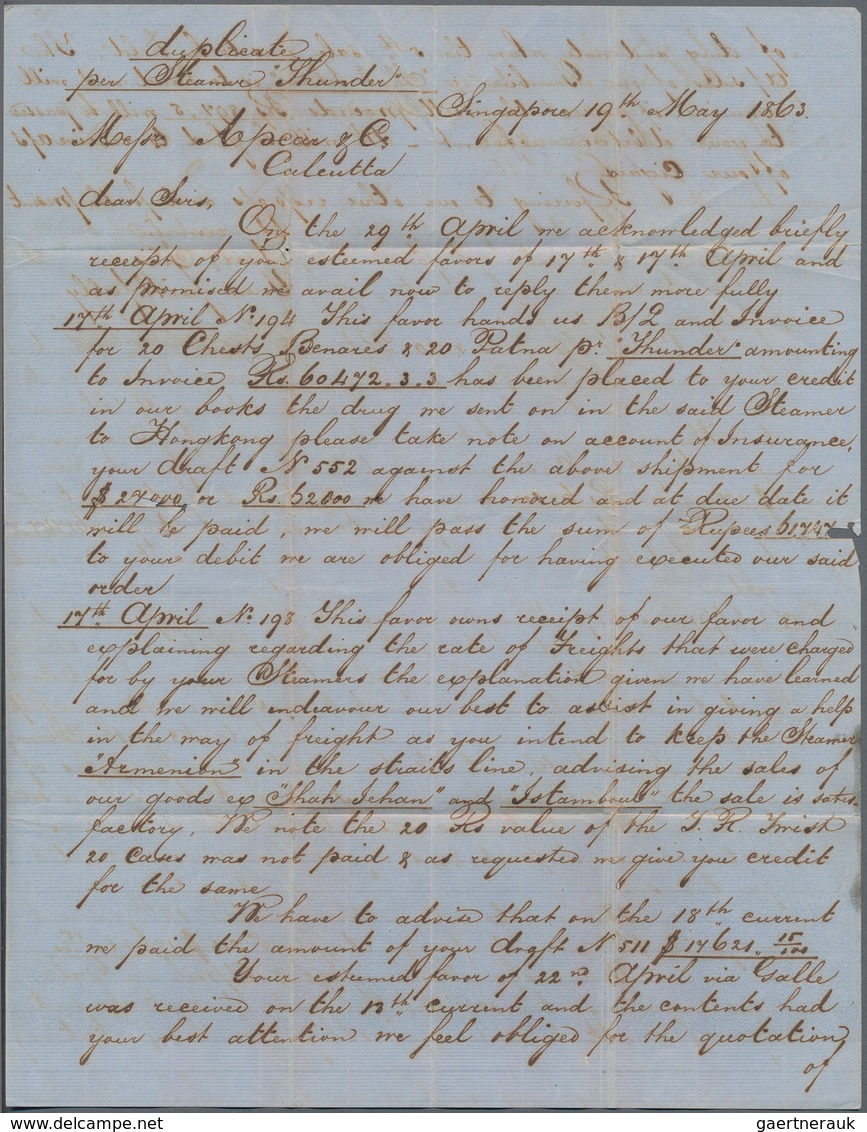 duplicate
per Steamer "Thunder"
Singapore 19th May 1863.
Messrs Apcar & Co
Calcutta
dear Sirs,
On the 29th April we acknowledged briefly
receipt of your esteemed favors of 17th & 17th April and
as promised we avail now to reply them more fully
17th April No. 194 This favor hands us B/L and Invoice
for 20 Chests Benares & 20 Patna pr "Thunder" amounting
to Invoice Rs. 60472.3.3 has been placed to your credit
in our books the drug we sent on in the said Steamer
to Hongkong please take note on account of Insurance,
your draft N 552 against the above shipment for
$ 27000 or Rs. 62000 we have honored and at due date it
will be paid, we will pass the sum of Rupees 61747
to your debit we are obliged for having executed our said
order
17th April No. 198 This favor owns receipt of our favor and
explaining regarding the rate of Freights that were charged
for by your Steamers the explanation given we have learned
and we will endeavour our best to assist in giving a help
in the way of freight as you intend to keep the Steamer
"Armenion" in the straits line, advising the sales of
our goods ex "Shah Jehan" and "Istamboul" the sale is satis-
factory. We note the 20 Rs value of the T. R. Twist
20 Cases was not paid & as requested we give you credit
for the same
We have to advise that on the 18th current
we paid the amount of your draft N 511 $ 17621. 15/100
Your esteemed favor of 22nd April via Galle
was received on the 13th current and the contents had
your best attention we feel obliged for the quotation
of
gaertnerauk